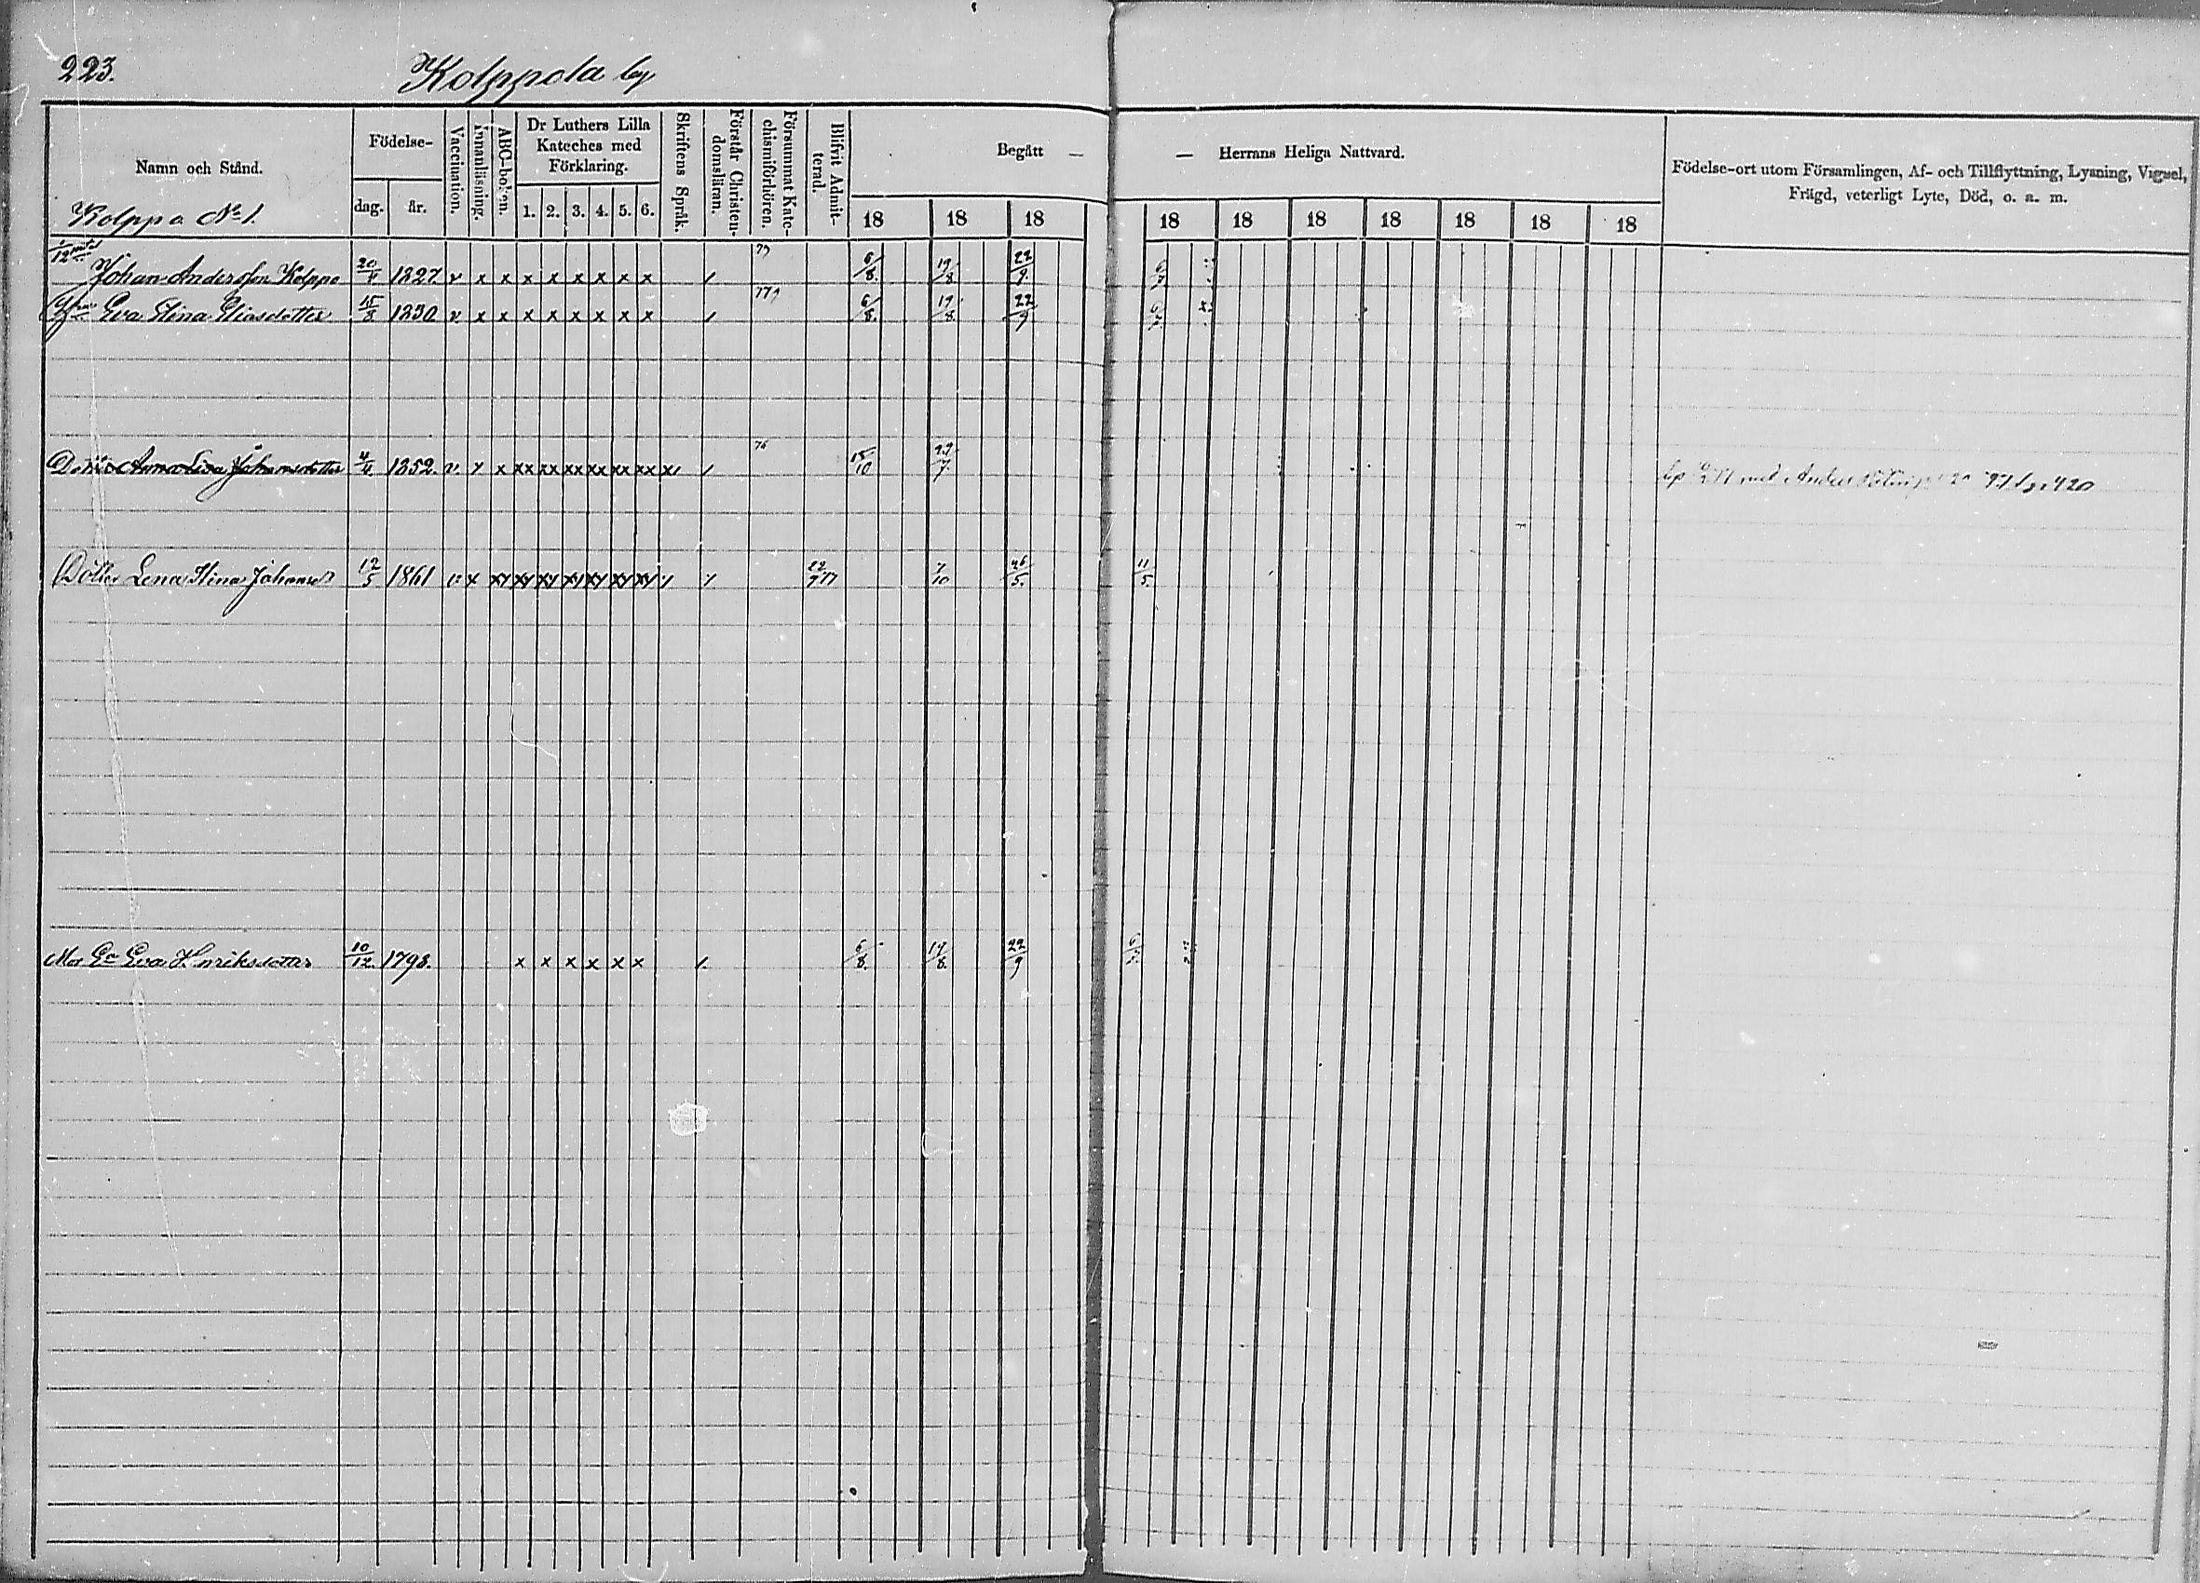 223.
Kolppola by
Namn och Stånd.
Födelse-
dag.
år.
Vaccination.
Innanläsning.
ABC-boken.
Dr Luthers Lilla
Kateches med
Förklaring.
1. 2. 3. 4. 5. 6.
Skriftens Språk.
Förstår Christen-
domsläran.
Försummat Kate-
chismiförhören.
Blifvit Admit-
terad.
Begått —
— Herrans Heliga Nattvard.
18 18 18 18 18 18 18 18 18 18
Födelse-ort utom Församlingen, Af- och Tillflyttning, Lysning, Vigsel,
Frägd, veterligt Lyte, Död, o. a. m.
Kolppo No 1.
Johan Andersson Kolppo 20/4 1827. v x x x x x x x x / 79 6/8. 19/8 22/9. 6/7
Eva Stina Eliasdotter 15/8 1830 v. x x x x x x x x / 6/8. 19/8. 22/9 6/7
Anna Lisa Johansdotter 1852. v. x xx xx xx xx xx xx / 76 15/10 29/7. med Anders 420
Dotter Lena Stina Johansd 12/5 1861 v x xx xx xx xx xx xx xx / 7/10 26/5. 11/5.
Mor Ea Eva Henriksdotter 10/12. 1798. x x x x x x /. 6/8. 19/8. 22/9